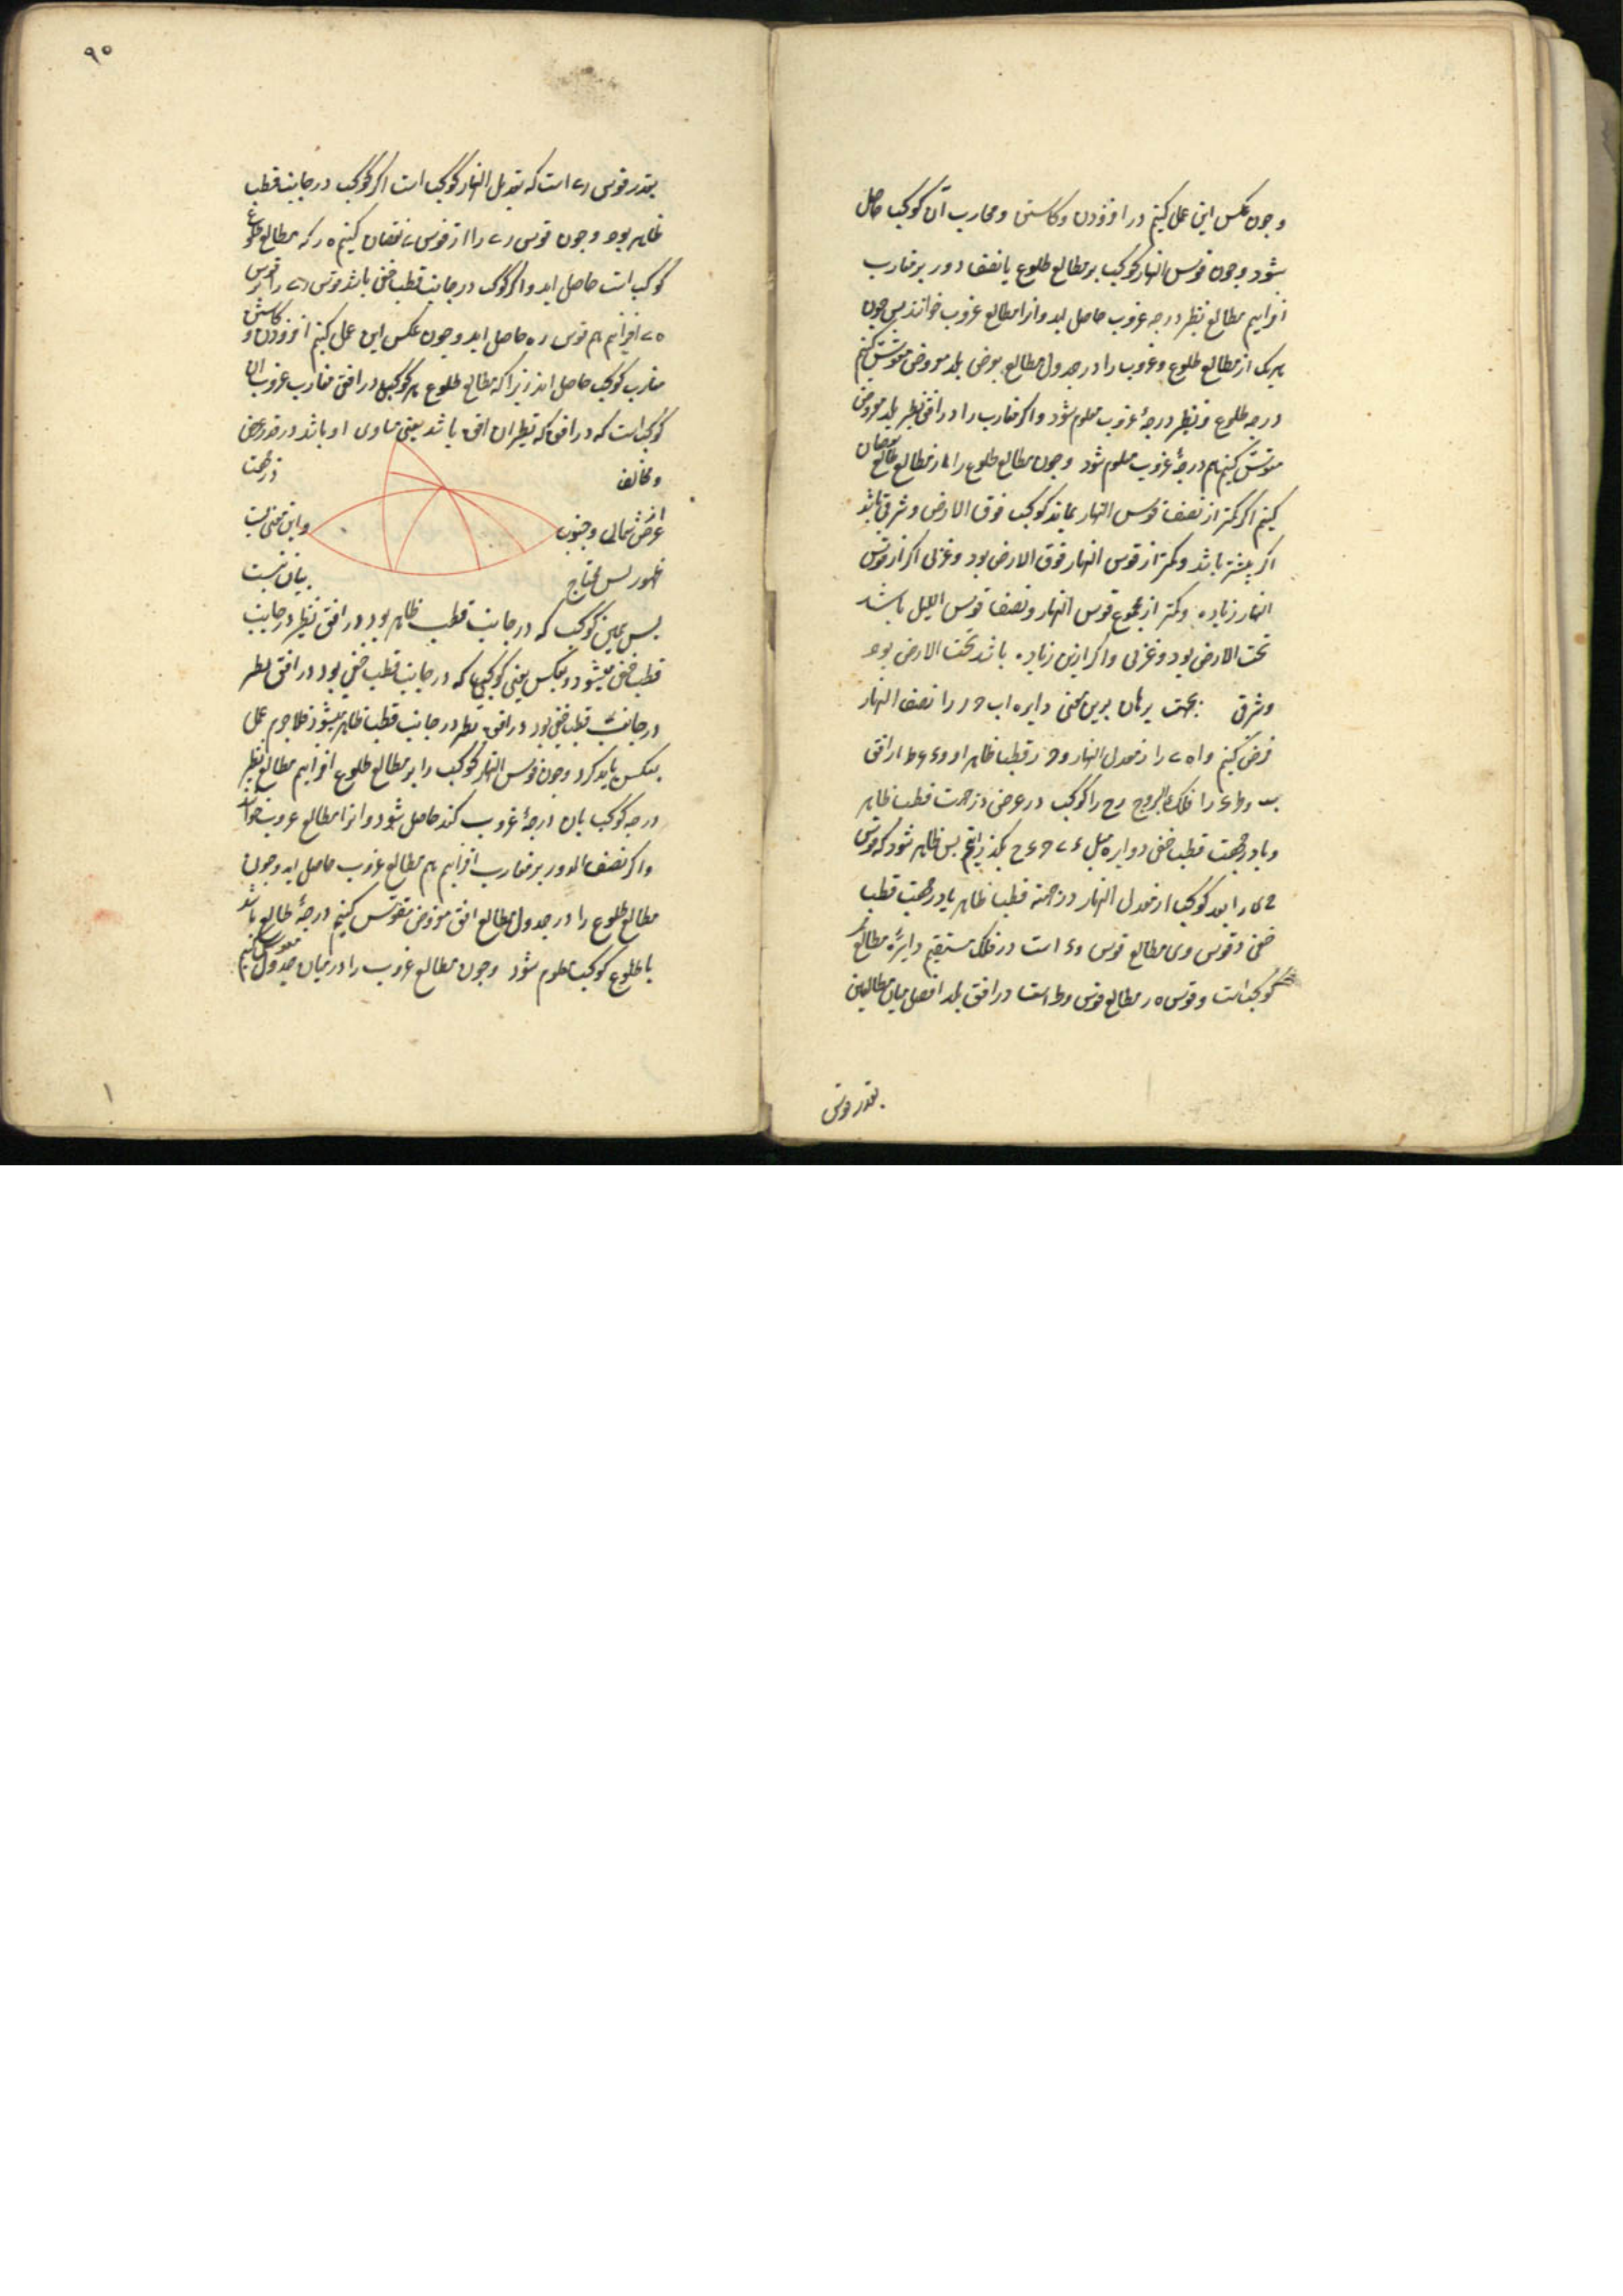 وچون عکس این عمل کنیم در افزودن وکاستن ومغارب آن کوکب حاصل
شود وچون قوس النهار کوکب بر مطالع طلوع یا نصف دور بر مغارب
افزاییم مطالع نظیر درجه غروب حاصل اید وانرا مطالع غروب خوانند پس چون
هریک از مطالع طلوع وغروب را در جدول مطالع بعرض بلد مفروض مقوس کنیم
درجه طلوع ونظیر درجهٔ غروب معلوم شود واکر مغارب را در افق نظیر بلد مفروض
مقوس کنیم هم درجهٔ غروب معلوم شود وچون مطالع طلوع را از مطالع طالع نقصان
کنیم اکر کمتر از نصف قوس النهار بماند کوکب فوق الارض وشرقی باشد
اکر بیشتر باشد وکمتر از قوس النهار فوق الارض بود وغربی اکر از قوس
النهار زیاده وکمتر از مجموع قوس النهار ونصف قوس اللیل باشد
تحت الارض بود وغربی واکر ازین زیاده باشد تحت الارض بود
وشرقی بجهت برهان برین معنی دایره اب ح ر را نصف النهار
فرض کنیم و را از معدل النهار و قطب ظاهر او و از افق
بلد و را فلک البروج را کوکب در عرض در جهت قطب ظاهر
ویا در جهت قطب خفی ودوایر میل بکذرانیم پس ظاهر شود که قوس
را بعد کوکب از معدل النهار در جهة قطب ظاهر یا در جهت قطب
خفی وقوس مطالع قوس است در فلک مستقیم مطالع
کوکب است وقوس ه ر مطالع قوس وط است در افق بلد وفصل میان مطالعین
بقدر قوس
۹۰
بقدر قوس است که تعدیل النهار کوکب است اکر کوکب در جانب قطب
ظاهر بود وچون قوس را از قوس نقصان کنیم ه ر که مطالع طلوع
کوکب است حاصل اید واکر کوکب در جانب قطب خفی باشد قوس را بر قوس
افزاییم هم قوس ر ه حاصل اید وچون عکس این عمل کنیم افزودن وکاستن
مغارب کوکب حاصل اید زیرا که مطالع طلوع هر کوکب در افق مغارب غروب ان
کوکب است که در افق که نظیر ان افق باشد یعنی مساوی او باشد در قدر عرض
ومخالف
در جهت
از عرض شمالی وجنوب
واین معنی
ظهور پس محتاج
بیان نیست
پس همین کوکب که در جانب قطب ظاهر بود در افق نظیر در جانب
قطب خفی میشود وبعکس یعنی کوکبی که در جانب قطب خفی بود در افق نظیر
در جانب قطب خفی بود در افق نظیر در جانب قطب ظاهر میشود فلاجرم عمل
بعکس باید کرد وچون قوس النهار کوکب را بر مطالع طلوع افزاییم مطالع نظیر
درجه کوکب بان درجهٔ غروب کند حاصل شود وانرا مطالع غروب خوانند
واکر نصف الدور بر مغارب افزاییم هم مطالع غروب حاصل اید وچون
مطالع طلوع را در جدول مطالع افق مفروض مقوس کنیم درجهٔ طالع باشد
با طلوع کوکب معلوم شود وچون مطالع غروب را در همان جدول مقوس کنیم
۱